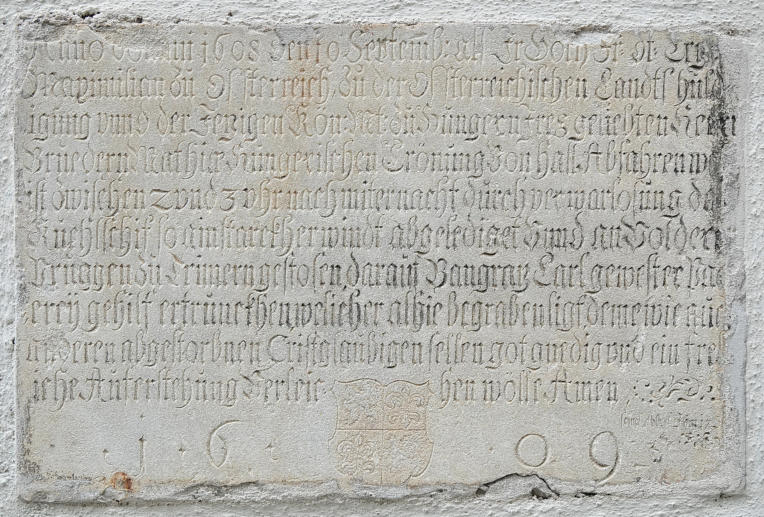 Anno domini 1608 den 19 Septemb: als Fr Dch Fr
Maximilian Zu Ossterreich, Zu der Ossterreichischen Landts huld
igung vnnd der Jenigen Kön: Mt: Zu Hungern Fres geliebten Herrn
Bruedern Mathias Hungerischen Crönung Von Hall Abfahren
ist Zwischen 2 vnd 3 vhr nach miternacht durch verwarlosung
Kuchlschif so ain starckher windt abgelediget Vnnd an Volderer
Bruggen Zu Trimern gestosen, daraus Pangraz Carl gewester
erey gehilf ertrunckhen, welicher alhie begraben ligt, deme wie auch
anderen abgestorbnen Cristglaubigen sellen got gnedig vnd ein
iche Auferstehung Verleic hen wölle Amen
1 6 0 9